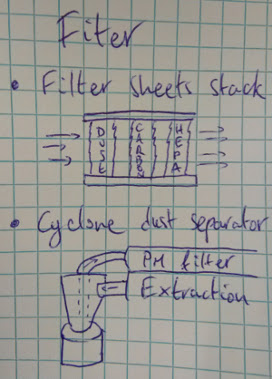 Fiter
• Filter sheets stack
DUSE
CARBB
HEPA
• Cyclone dust separator
PH filter
Extraction